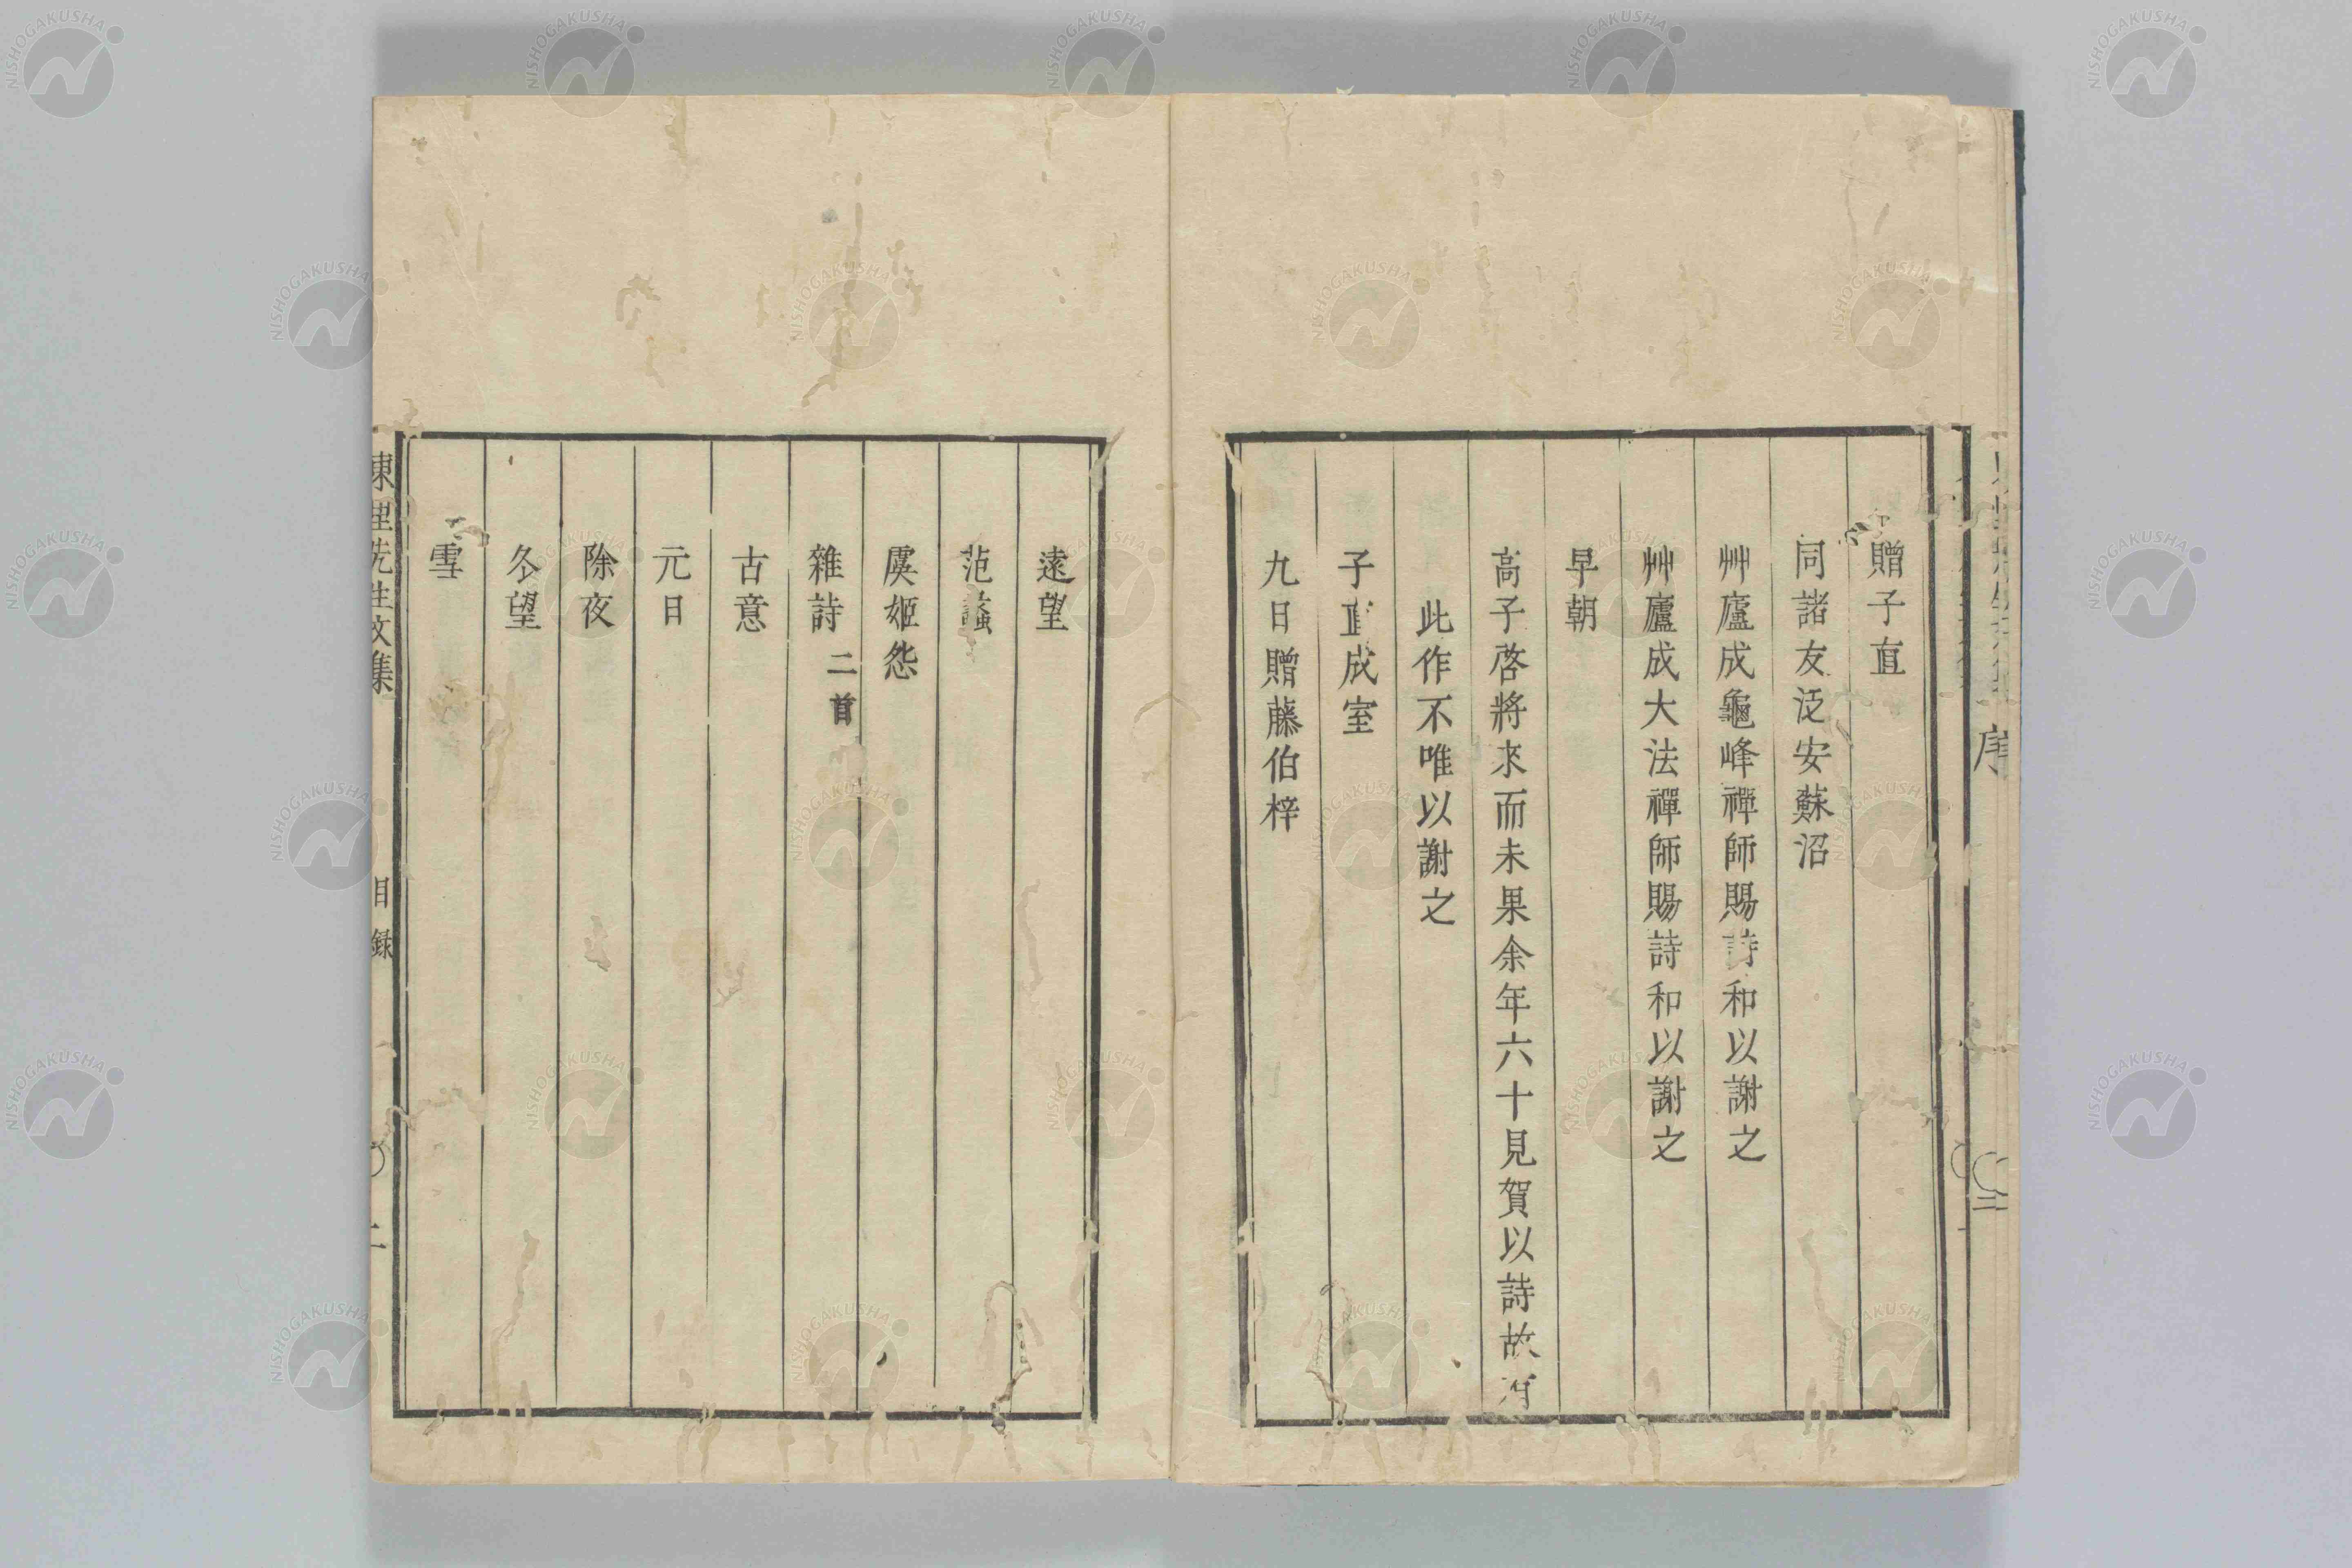 贈子直
同諸友泛安蘇沼
艸廬成龜峰禪師賜詩和以謝之
艸廬成大法禪師賜詩和以謝之
早朝
高子啓將來而未果余年六十見賀以詩故有
此作不唯以謝之
子直成室
九日贈藤伯梓
遠望
范蠡
虞姬怨
雜詩 二首
古意
元日
除夜
冬望
雪
東里先生文集 目録 二
序 三
NISHOGAKUSHA